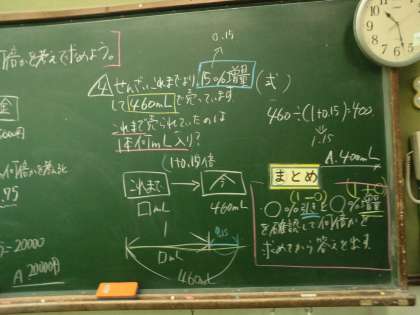 何倍かを考えて求めよう。
0.15
4 せんざい、これまでより、15%増量
して460mLで売っています。
これまで売られていたのは
1本何mL入り?
(1+0.15)倍
これまで
今
□mL
460mL
1
0.15
□mL
460mL
(式)
460÷(1+0.15)=400
1.15
A.400mL
まとめ
(1-○) (1+○)
○%引きと○%増量
を確認して何倍かを
求めてから答えを出す
金
何倍かを考え
.75
20000
A 20000円